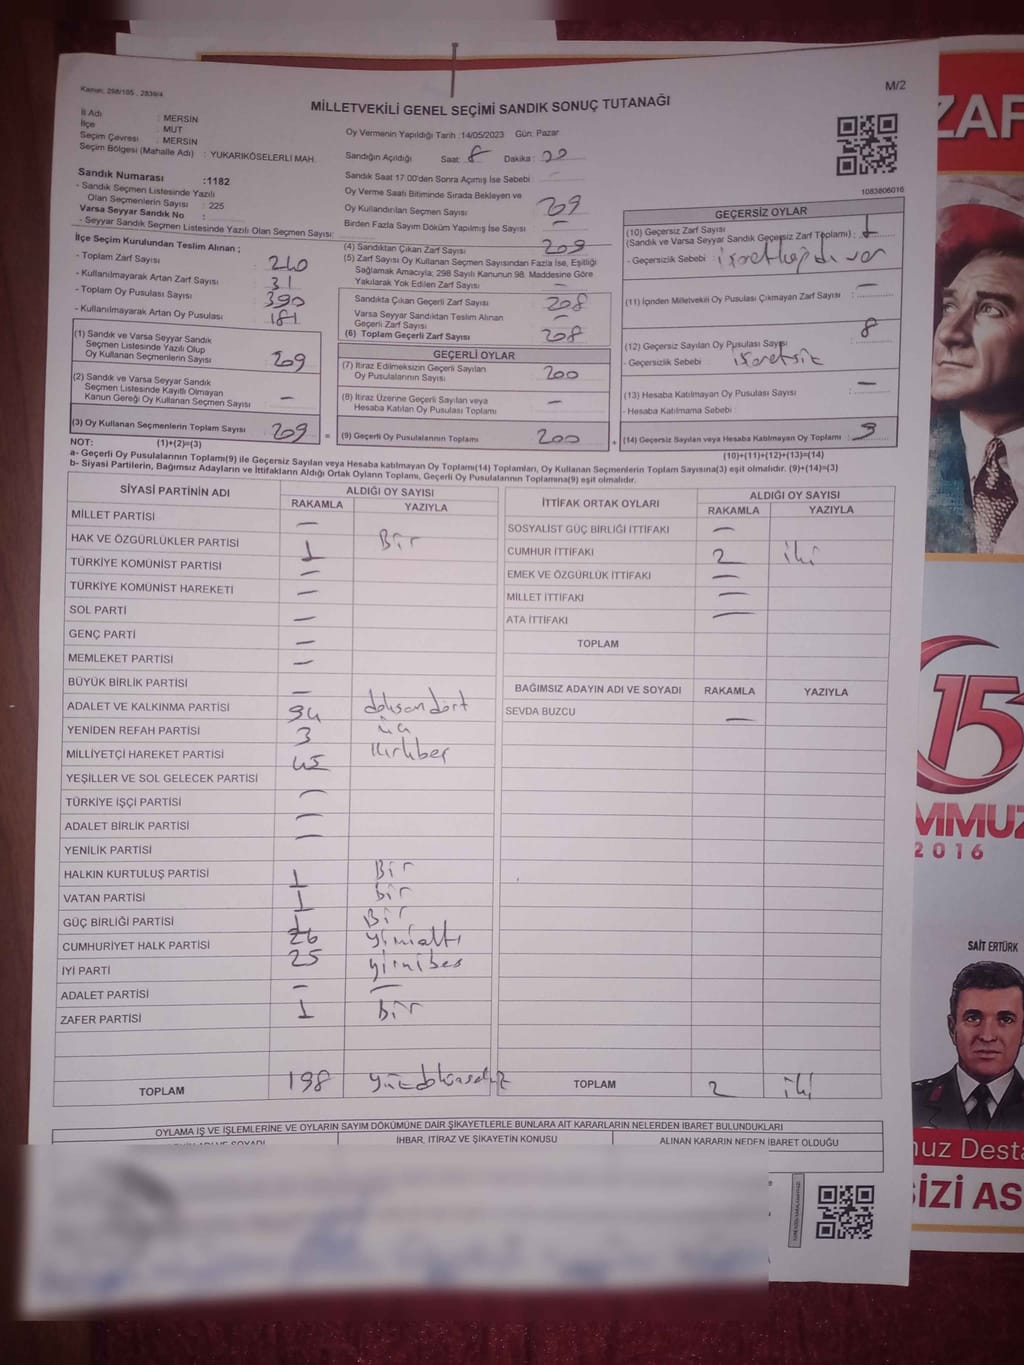 Kanun: 298/105 , 2839/4
M/2
MİLLETVEKİLİ GENEL SEÇİMİ SANDIK SONUÇ TUTANAĞI
İl Adı : MERSİN
İlçe : MUT
Seçim Çevresi : MERSİN
Seçim Bölgesi (Mahalle Adı) : YUKARIKÖSELERLİ MAH.
Sandık Numarası :1182
- Sandık Seçmen Listesinde Yazılı
Olan Seçmenlerin Sayısı : 225
Varsa Seyyar Sandık No :
- Seyyar Sandık Seçmen Listesinde Yazılı Olan Seçmen Sayısı:
Oy Vermenin Yapıldığı Tarih :14/05/2023 Gün: Pazar
Sandığın Açıldığı Saat: 8 Dakika :
Sandık Saat 17:00'den Sonra Açımış İse Sebebi :
Oy Verme Saati Bitiminde Sırada Bekleyen ve
Oy Kullandırılan Seçmen Sayısı : 209
Birden Fazla Sayım Döküm Yapılmış İse Sayısı : –
1083806016
İlçe Seçim Kurulundan Teslim Alınan ;
- Toplam Zarf Sayısı : 240
- Kullanılmayarak Artan Zarf Sayısı : 31
- Toplam Oy Pusulası Sayısı : 390
- Kullanılmayarak Artan Oy Pusulası : 181
(1) Sandık ve Varsa Seyyar Sandık
Seçmen Listesinde Yazılı Olup
Oy Kullanan Seçmenlerin Sayısı : 209
(2) Sandık ve Varsa Seyyar Sandık
Seçmen Listesinde Kayıtlı Olmayan
Kanun Gereği Oy Kullanan Seçmen Sayısı : –
(3) Oy Kullanan Seçmenlerin Toplam Sayısı : 209
(4) Sandıktan Çıkan Zarf Sayısı : 209
(5) Zarf Sayısı Oy Kullanan Seçmen Sayısından Fazla İse, Eşitliği
Sağlamak Amacıyla; 298 Sayılı Kanunun 98. Maddesine Göre
Yakılarak Yok Edilen Zarf Sayısı : –
Sandıkta Çıkan Geçerli Zarf Sayısı : 208
Varsa Seyyar Sandıktan Teslim Alınan
Geçerli Zarf Sayısı : –
(6) Toplam Geçerli Zarf Sayısı : 208
GEÇERLİ OYLAR
(7) İtiraz Edilmeksizin Geçerli Sayılan
Oy Pusulalarının Sayısı : 200
(8) İtiraz Üzerine Geçerli Sayılan veya
Hesaba Katılan Oy Pusulası Toplamı : –
= (9) Geçerli Oy Pusulalarının Toplamı : 200
GEÇERSİZ OYLAR
(10) Geçersiz Zarf Sayısı
(Sandık ve Varsa Seyyar Sandık Geçersiz Zarf Toplamı) : 1
- Geçersizlik Sebebi :
(11) İçinden Milletvekili Oy Pusulası Çıkmayan Zarf Sayısı : –
(12) Geçersiz Sayılan Oy Pusulası Sayısı : 8
- Geçersizlik Sebebi : işaretsik
(13) Hesaba Katılmayan Oy Pusulası Sayısı : –
- Hesaba Katılmama Sebebi :
+ (14) Geçersiz Sayılan veya Hesaba Katılmayan Oy Toplamı : 9
NOT: (1)+(2)=(3)
(10)+(11)+(12)+(13)=(14)
a- Geçerli Oy Pusulalarının Toplamı(9) ile Geçersiz Sayılan veya Hesaba katılmayan Oy Toplamı(14) Toplamları, Oy Kullanan Seçmenlerin Toplam Sayısına(3) eşit olmalıdır. (9)+(14)=(3)
b- Siyasi Partilerin, Bağımsız Adayların ve İttifakların Aldığı Ortak Oyların Toplamı, Geçerli Oy Pusulalarının Toplamına(9) eşit olmalıdır.
SİYASİ PARTİNİN ADI ALDIĞI OY SAYISI
RAKAMLA YAZIYLA
MİLLET PARTİSİ –
HAK VE ÖZGÜRLÜKLER PARTİSİ 1 Bir
TÜRKİYE KOMÜNİST PARTİSİ –
TÜRKİYE KOMÜNİST HAREKETİ –
SOL PARTİ –
GENÇ PARTİ –
MEMLEKET PARTİSİ –
BÜYÜK BİRLİK PARTİSİ –
ADALET VE KALKINMA PARTİSİ 94 doksandört
YENİDEN REFAH PARTİSİ 3 üç
MİLLİYETÇİ HAREKET PARTİSİ 45 Kırkbeş
YEŞİLLER VE SOL GELECEK PARTİSİ
TÜRKİYE İŞÇİ PARTİSİ –
ADALET BİRLİK PARTİSİ –
YENİLİK PARTİSİ –
HALKIN KURTULUŞ PARTİSİ 1 Bir
VATAN PARTİSİ 1 bir
GÜÇ BİRLİĞİ PARTİSİ 1 Bir
CUMHURİYET HALK PARTİSİ 26 yirmialtı
İYİ PARTİ 25 yirmibeş
ADALET PARTİSİ – –
ZAFER PARTİSİ 1 Bir
TOPLAM 198 yüzdoksansekiz
İTTİFAK ORTAK OYLARI ALDIĞI OY SAYISI
RAKAMLA YAZIYLA
SOSYALİST GÜÇ BİRLİĞİ İTTİFAKI –
CUMHUR İTTİFAKI 2 iki
EMEK VE ÖZGÜRLÜK İTTİFAKI –
MİLLET İTTİFAKI –
ATA İTTİFAKI –
TOPLAM
BAĞIMSIZ ADAYIN ADI VE SOYADI RAKAMLA YAZIYLA
SEVDA BUZCU –
TOPLAM 2 iki
OYLAMA İŞ VE İŞLEMLERİNE VE OYLARIN SAYIM DÖKÜMÜNE DAİR ŞİKAYETLERLE BUNLARA AİT KARARLARIN NELERDEN İBARET BULUNDUKLARI
İHBAR, İTİRAZ VE ŞİKAYETİN KONUSU
ALINAN KARARIN NEDEN İBARET OLDUĞU
ZAF
15
MMUZ
2016
SAİT ERTÜRK
uz Desta
İZİ AS